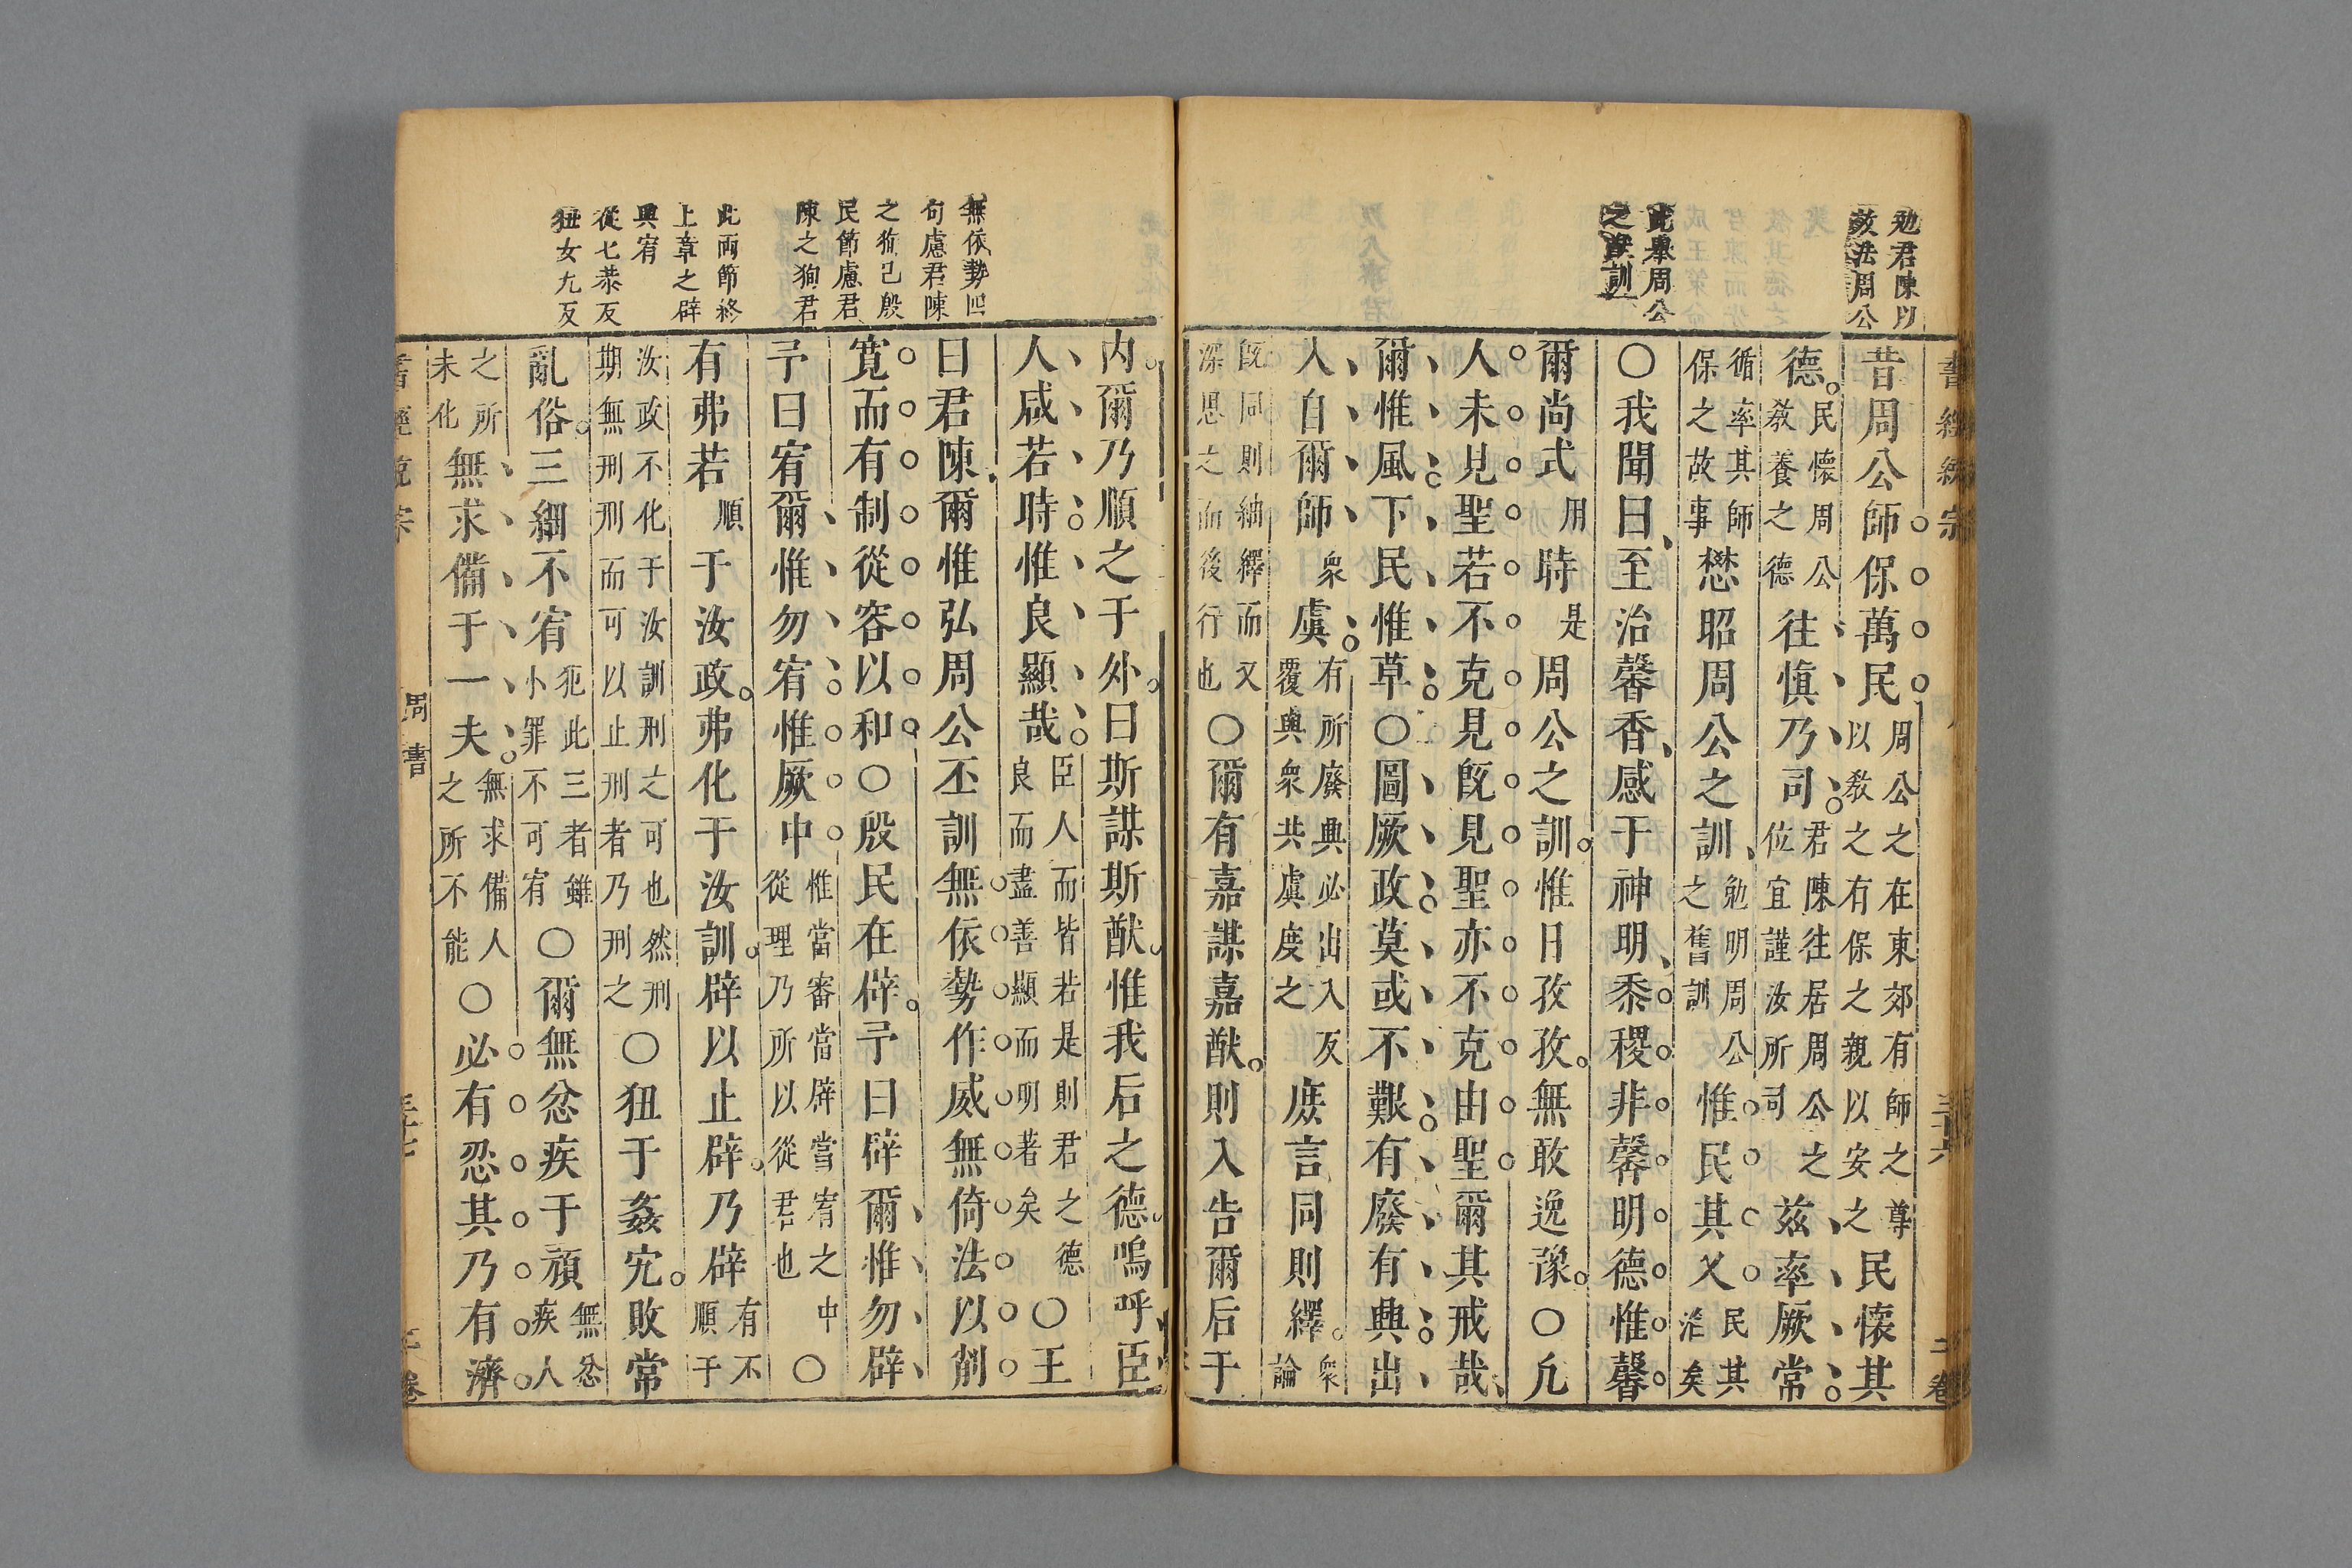 勉君陳以
敘法周公
此舉周公
之訓
昔周公師保萬民周公之在東郊有師之尊以敎之有保之親以安之民懷其
德民懷周公敎養之德往愼乃司君陳往居周公之位宜謹汝所司茲率厥常
循率其師保之故事懋昭周公之訓勉明周公之舊訓惟民其乂民其治矣
〇我聞曰至治馨香感于神明黍稷非馨明德惟馨
爾尚式用時是周公之訓惟日孜孜無敢逸豫〇凡
人未見聖若不克見旣見聖亦不克由聖爾其戒哉
爾惟風下民惟草〇圖厥政莫或不艱有廢有興出
入自爾師衆虞有所廢興必出入反覆與衆共虞度之庶言同則繹衆論
旣同則紬繹而深思之而後行也〇爾有嘉謀嘉猷則入告爾后于
書經統宗
三十六
二卷
無依勢四
句慮君陳
之狥己殷
民節慮君
陳之狥君
此兩節終
上章之辟
與宥
從七恭反
狃女九反
內爾乃順之于外曰斯謀斯猷惟我后之德嗚呼臣
人咸若時惟良顯哉臣人而皆若是則君之德良而盡善顯而明著矣〇王
曰君陳爾惟弘周公丕訓無依勢作威無倚法以削
寬而有制從容以和〇殷民在辟予曰辟爾惟勿辟
予曰宥爾惟勿宥惟厥中惟當審當辟當宥之中從理乃所以從君也〇
有弗若順于汝政弗化于汝訓辟以止辟乃辟有不順于
汝政不化于汝訓刑之可也然刑期無刑刑而可以止刑者乃刑之〇狃于姦宄敗常
亂俗三細不宥犯此三者雖小罪不可宥〇爾無忿疾于頑無忿疾人
之所未化無求備于一夫無求備人之所不能〇必有忍其乃有濟
書經統宗
周書
三十七
二卷